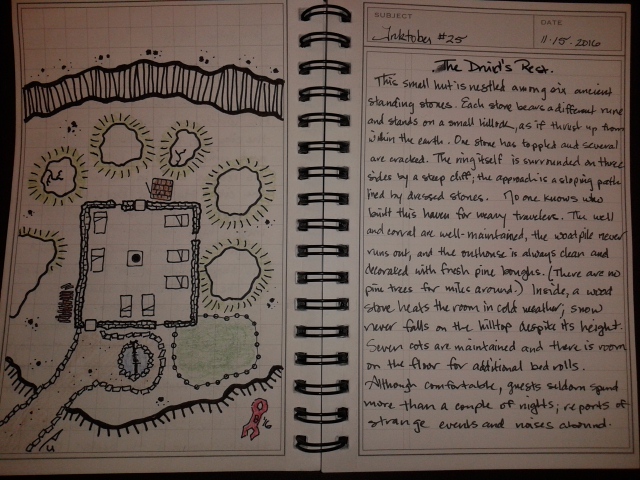 SUBJECT
DATE
Inktober #25
11.15.2016
The Druid's Rest.
This small hut is nestled among six ancient
standing stones. Each stone bears a different rune
and stands on a small hillock, as if thrust up from
within the earth. One stone has toppled and several
are cracked. The ring itself is surrounded on three
sides by a steep cliff; the approach is a sloping path
lined by dressed stones. No one knows who
built this haven for weary travelers. The well
and corral are well-maintained, the woodpile never
runs out, and the outhouse is always clean and
decorated with fresh pine boughs. (There are no
pine trees for miles around.) Inside, a wood
stove heats the room in cold weather; snow
never falls on the hilltop despite its height.
Seven cots are maintained and there is room
on the floor for additional bed rolls.
Although comfortable, guests seldom spend
more than a couple of nights; reports of
strange events and noises abound.